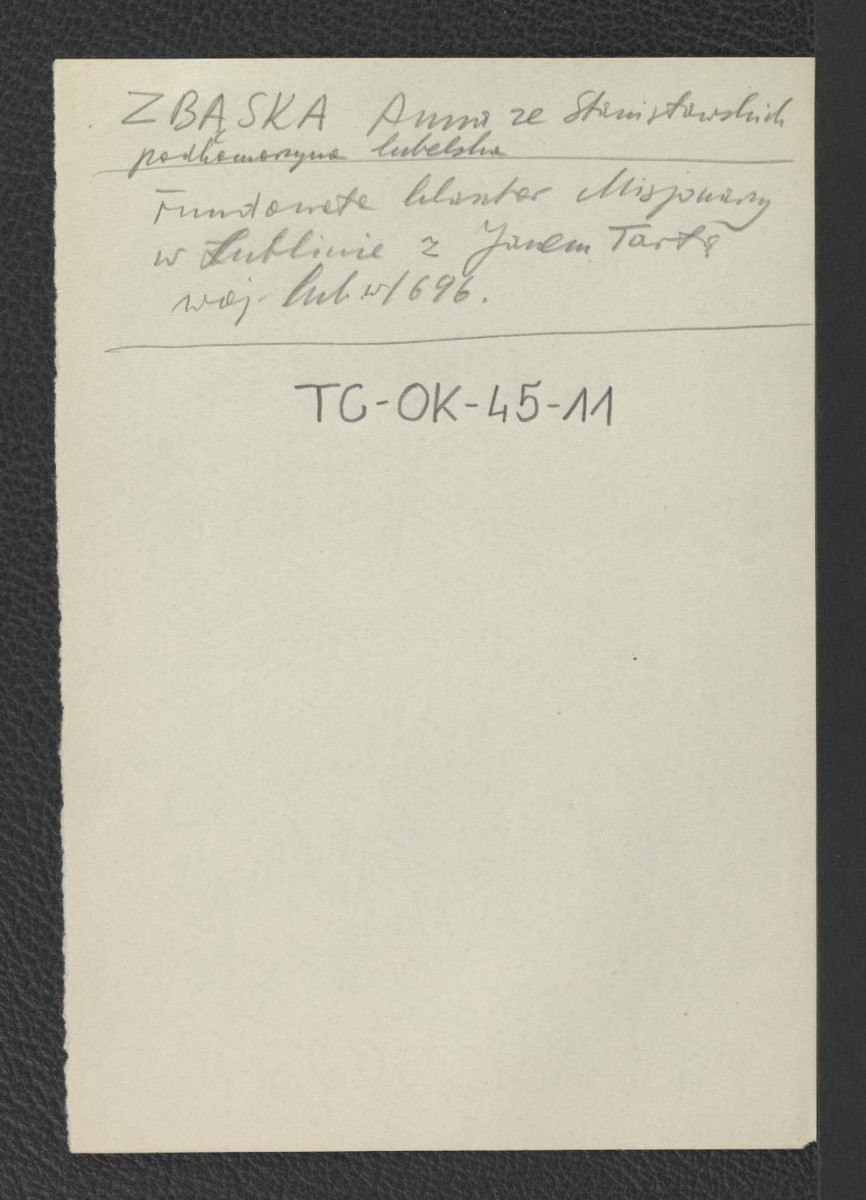 ZBĄSKA Anna ze Stanisławskich
podkomorzyna lubelska
Fundowała klasztor Misjonarzy
w Lublinie z Janem Tarłą
woj. lub. w 1696.
TG-OK-45-11